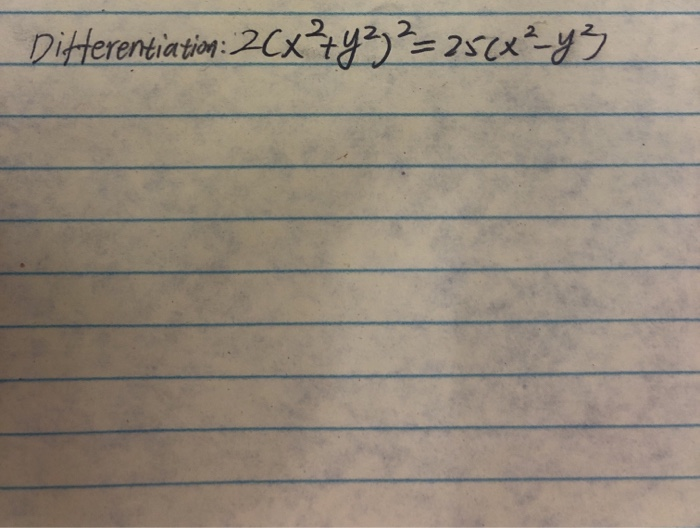 Differentiation: 2(x²+y²)²=25(x²-y²)